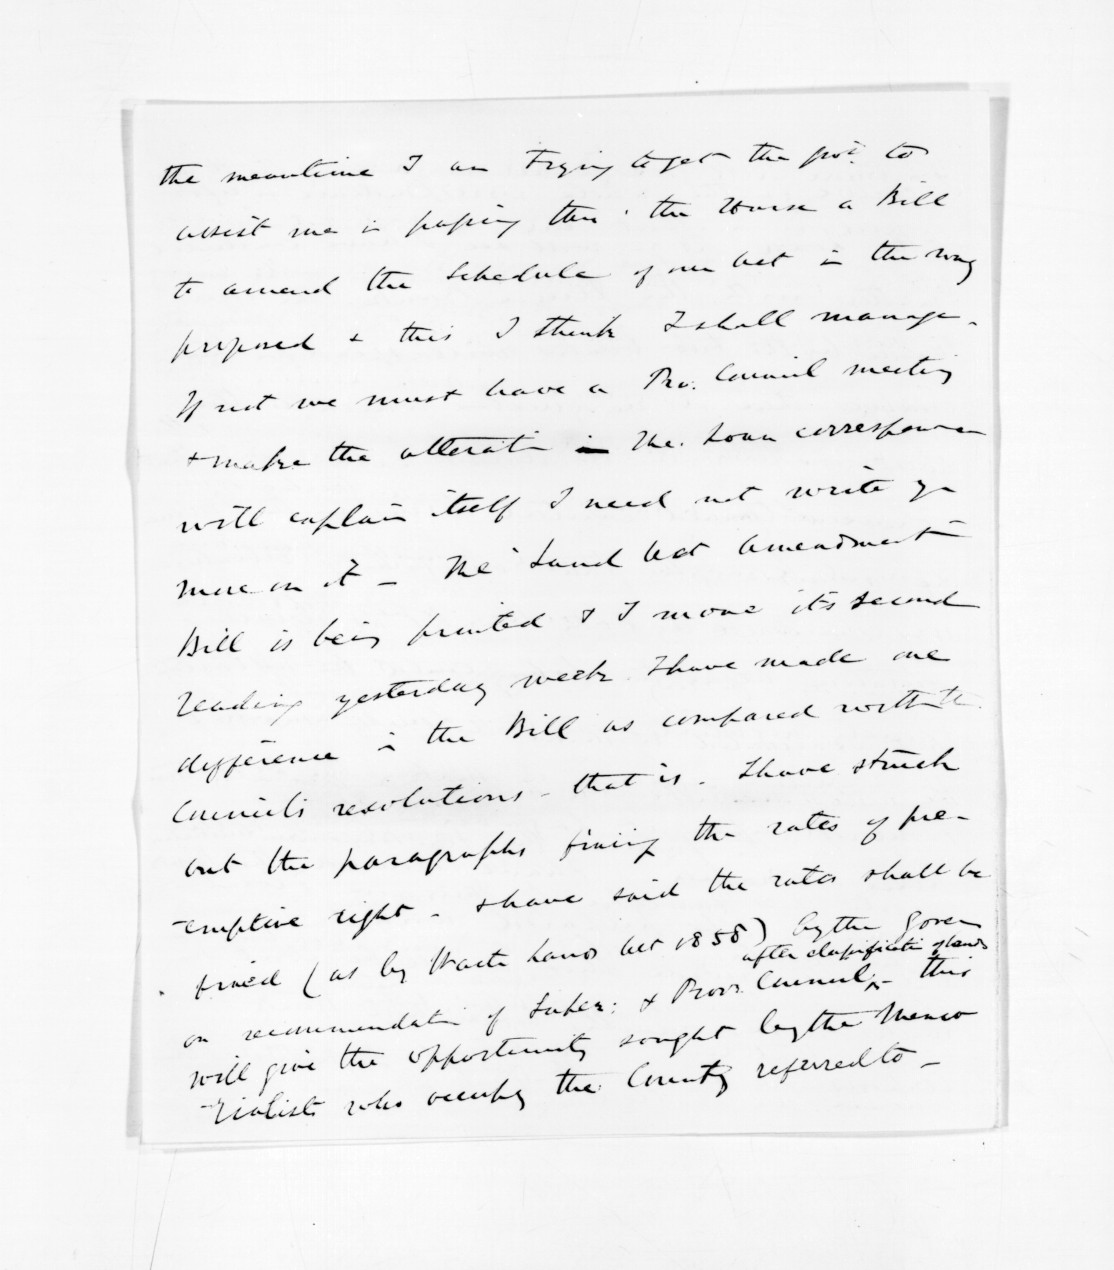 the meantime I am trying to get the govt. to
assist me in passing thro' the House a Bill
to amend the Schedule of our Act in the way
proposed & this I think I shall manage.
If not we must have a Pro. Council meeting
& make the alteratn in The Loan correspondence
will explain itself I need not write yr
more on it - The Land Act Amendment
Bill is being printed & I move its second
reading yesterday week. I have made one
difference in the Bill as compared with the
Council's resolutions - that is. I have struck
out the paragraphs fixing the rates of pre-
-emptive right - & have said the rates shall be
fixed (as by Waste Lands Act 1858) by the Gover
after classification of lands
on recommendatn of Super: & Provl. Council, - this
will give the opportunity sought by the Memo
-rialists who occupy the County referred to -